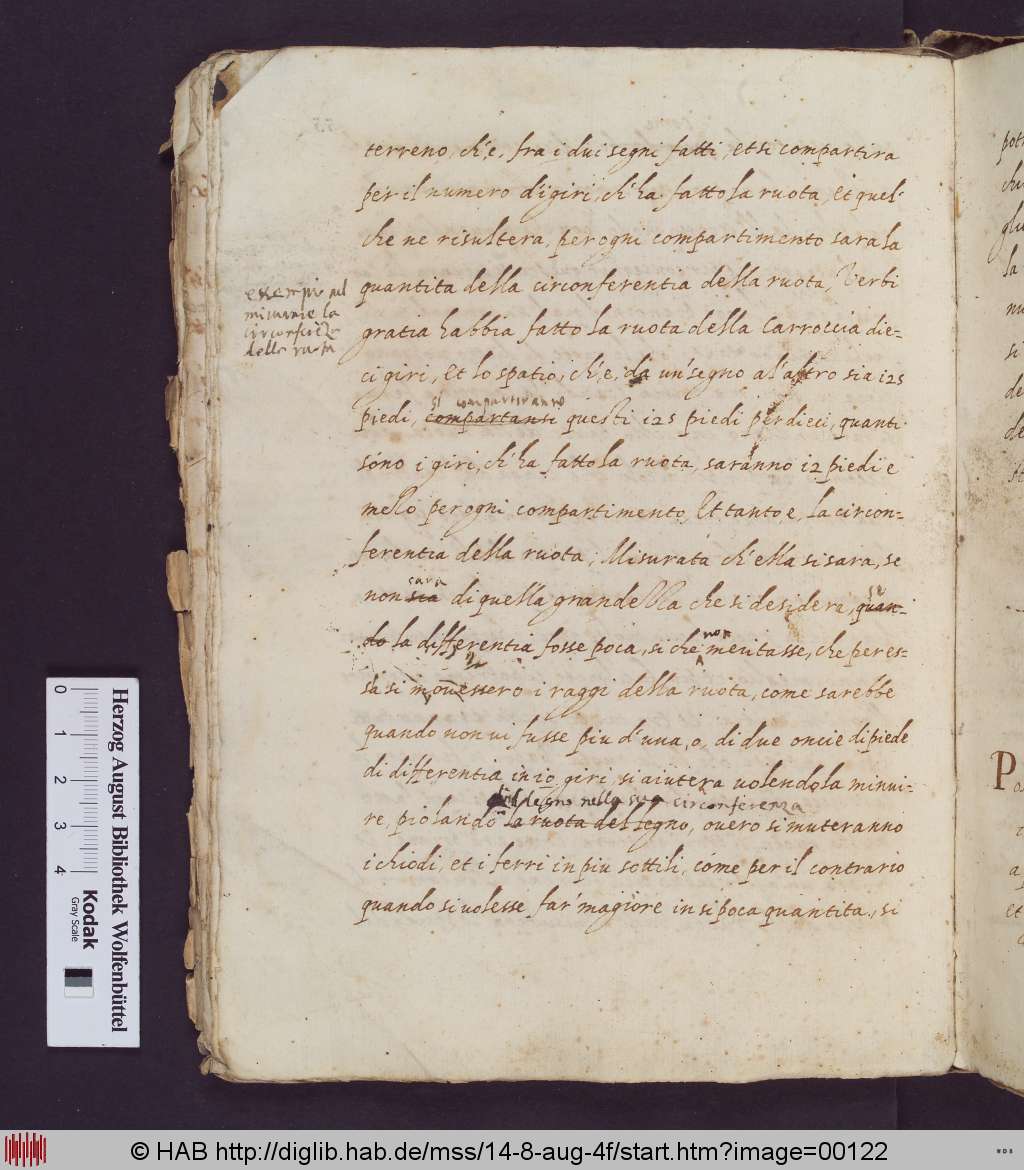 terreno, ch'e, fra i dui segni fatti, et si compartira
per il numero d'i giri, ch'ha fatto la ruota, Et quel'
che ne risultera, per ogni compartimento sara la
quantita della circonferentia della ruota, Verbi
essempio
la
della ruota
gratia habbia fatto la ruota della Carroccia die=
ci giri, Et lo spatio, ch'e, da un'segno a l'altro sia 125
si compartiranno
piedi, compartansi questi 125 piedi per dieci, quanti
sono i giri, ch'ha fatto la ruota, saranno 12 piedi e
mezzo per ogni compartimento, Et tanto e, la circon=
ferentia della ruota; Misurata ch'ella si sara, se
sara
non sia di quella grandezza che si desidera, quan-
se
do la differentia fosse poca, si che non meritasse, che per es=
sa si movessero i raggi della ruota, come sarebbe
quando non vi fusse piu d'una, o, di due oncie di piede
di differentia in 10 giri, si aiutera volendola minui=
legno nella sua circonferenza
re, piolando la ruota del legno, overo si muteranno
i chiodi, et i ferri in piu sottili, come per il contrario
quando si volesse far' magiore in si poca quantita, si
Herzog August Bibliothek Wolfenbüttel
Kodak
Gray Scale
0 1 2 3 4
© HAB http://diglib.hab.de/mss/14-8-aug-4f/start.htm?image=00122